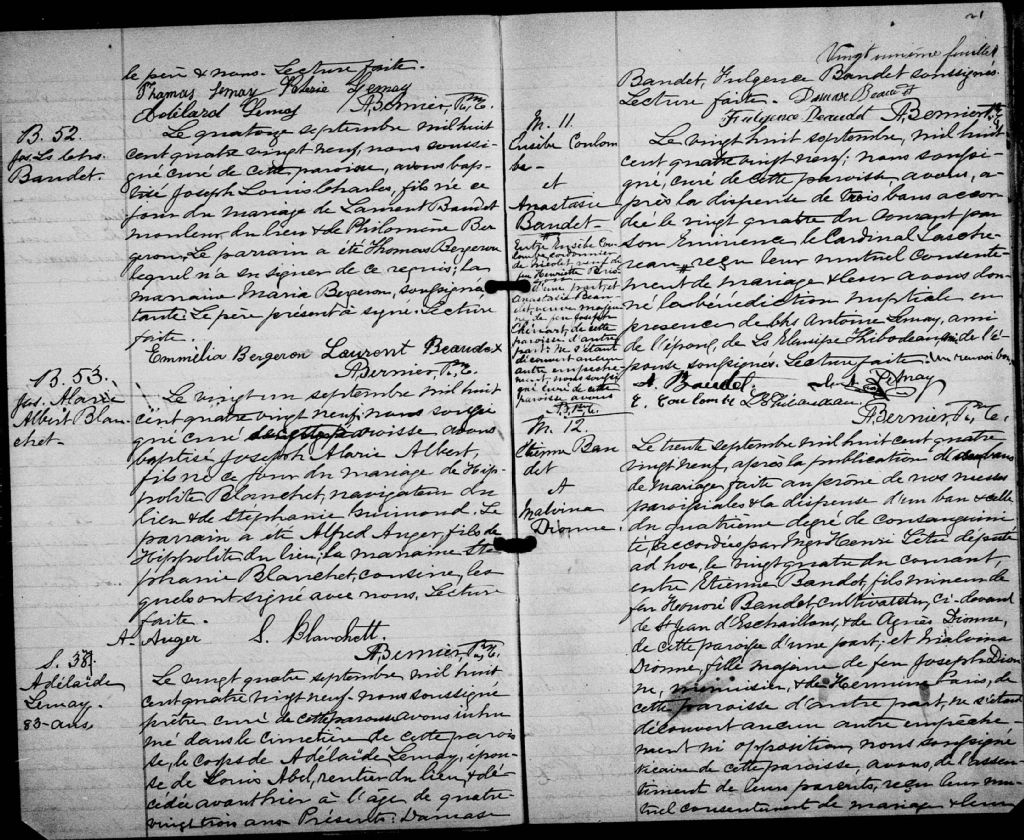 le père & nous. Lecture faite.
Thomas Lemay Valérie Lemay
Adélard Lemay A. Bernier, Ptre C.
B. 52.
Jos. Ls Chs.
Baudet.
Le quatorze septembre mil huit
cent quatre vingt neuf, nous soussi-
gné curé de cette paroisse, avons bap-
tisé Joseph Louis Charles, fils né ce
jour du mariage de Laurent Baudet
mouleur du lieu & de Philomène Ber
geron. Le parrain a été Thomas Bergeron
lequel n'a su signer de ce requis; la
marraine Maria Bergeron, soussignée
tante. Le père présent a signé. Lecture
faite.
Emmélia Bergeron Laurent Beaudet
A. Bernier, Ptre C.
B. 53.
Jos. Marie
Albert Blan-
chet.
Le vingt un septembre mil huit
cent quatre vingt neuf, nous soussi
gné curé de cette paroisse avons
baptisé Joseph Marie Albert,
fils né ce jour du mariage de Hip-
polite Blanchet, navigateur du
lieu & de Stéphanie Guimond. Le
parrain a été Alfred Auger, fils de
Hippolite du lieu; la marraine Sté
phanie Blanchet, cousine, les-
quels ont signé avec nous. Lecture
faite.
A. Auger S. Blanchett.
A. Bernier, Ptre C.
S. 38.
Adélaïde
Lemay.
83 ans.
Le vingt quatre septembre mil huit
cent quatre vingt neuf. nous soussigné
prêtre curé de cette paroisse avons inhu
mé dans le cimetière de cette parois
se, le corps de Adélaïde Lemay, épou-
se de Louis Abel, rentier du lieu, & dé-
cédée avant hier à l'âge de quatre
vingt trois ans. Présents: Damase
21
Vingt unième feuillet
Baudet, Fulgence Baudet soussignés.
Lecture faite. Damase Beaudet
Fulgence Beaudet A. Bernier Ptre C.
M. 11.
Eusèbe Coulom
be-
et
Anastasie
Baudet-
Entre Eusèbe Cou-
lombe cordonnier
de Nicolet, veuf de
feu Henriette
d'une part, et
Anastasie Beau-
det, veuve majeu-
re de feu Joseph
de cette
paroisse d'autre
part: ne s'étant
découvert aucun
autre empêche-
ment, nous soussi
gné curé de cette
paroisse avons
A. B. Ptre C.
Le vingt huit septembre, mil huit
cent quatre vingt neuf: nous soussi-
gné, curé de cette paroisse, avons, a-
près la dispense de trois bans accor
dée le vingt quatre du courant par
Son Eminence le Cardinal Tasche-
reau, # reçu leur mutuel consente-
ment de mariage & leur avons don-
né la bénédiction nuptiale en
présence de Chs Antoine Lemay, ami
de l'époux, de Ls Elusipe Thibodeau, ami de l'é-
pouse soussignés. Lecture faite. Un renvoi bon.
A. Baudet. Ant. Lemay
E. Coulombe L E Thibaudeau
A. Bernier, Ptre C.
M. 12.
Etienne Bau
det
&
Malvina
Dionne.
Le trente septembre mil huit cent quatre
vingt neuf, après la publication de bans
de Mariage faite au prône de nos messes
paroissiales & la dispense d'un ban & celle
du quatrième degré de consanguini
té, accordées par Mgr Henri Têtu député
ad hoc, le vingt quatre du courant,
entre Etienne Baudet, fils mineur de
feu Honoré Baudet, cultivateur, ci-devant
de St Jean d'Eschaillons, & de Agnès Dionne,
de cette paroisse d'une part; et Malvina
Dionne, fille majeure de feu Joseph Dion
ne, menuisier, & de Hermine Paris, de
cette paroisse d'autre part, ne s'étant
découvert aucun autre empêche-
ment ni opposition, nous soussigné
vicaire de cette paroisse, avons, de l'assen-
timent de leurs parents, reçu leur mu-
tuel consentement de mariage & leur